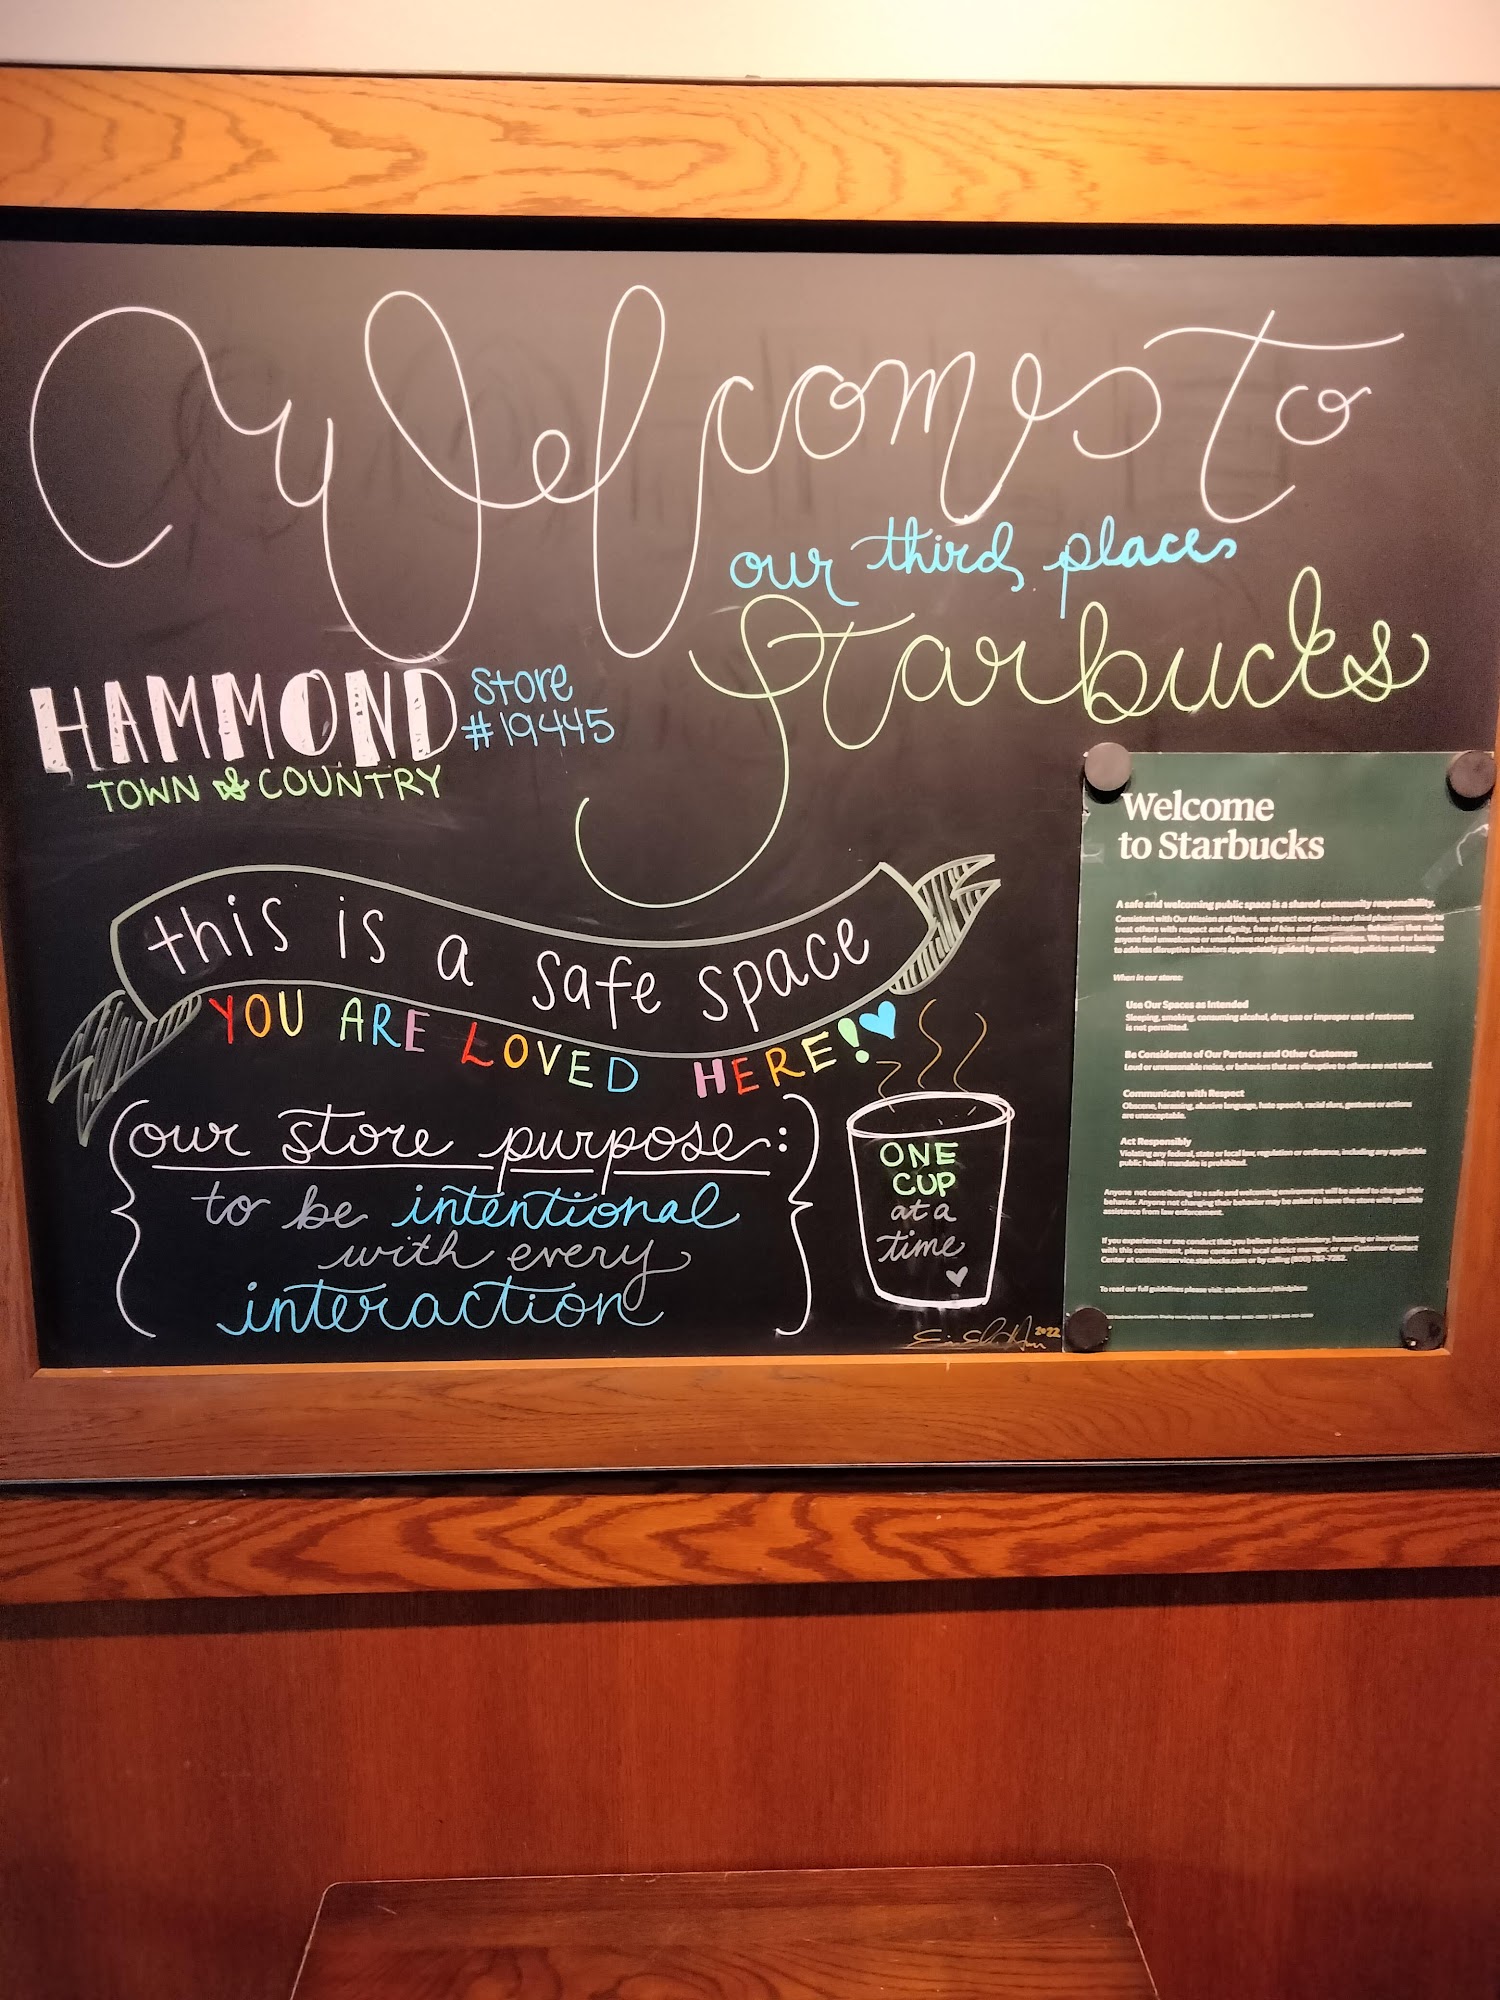 Welcome to
our third place
Starbucks
HAMMOND
Store
#19445
TOWN & COUNTRY
this is a safe space
YOU ARE LOVED HERE!
our store purpose:
to be intentional
with every
interaction
ONE
CUP
at a
time
2022
Welcome
to Starbucks
A safe and welcoming public space is a shared community responsibility.
Consistent with Our Mission and Values, we expect everyone in our third place community to
treat others with respect and dignity, free of bias and discrimination. Behaviors that make
anyone feel unwelcome or unsafe have no place in our stores. We trust our partners
to address disruptive behaviors appropriately guided by our existing policies and training.
When in our stores:
Use Our Spaces as Intended
Sleeping, smoking, consuming alcohol, drug use or improper use of restrooms
is not permitted.
Be Considerate of Our Partners and Other Customers
Loud or unreasonable noise, or behaviors that are disruptive to others are not tolerated.
Communicate with Respect
Obscene, harassing, abusive language, hate speech, racial slurs, gestures or actions
are unacceptable.
Act Responsibly
Violating any federal, state or local law, regulation or ordinance, including any applicable
public health mandate is prohibited.
Anyone not contributing to a safe and welcoming environment will be asked to change their
behavior. Anyone not changing their behavior may be asked to leave the store with possible
assistance from law enforcement.
If you experience or see conduct that you believe is discriminatory, harassing or inconsistent
with this commitment, please contact the local district manager, or our Customer Contact
Center at customerservice.starbucks.com or by calling (800) 782-7282.
To read our full guidelines please visit: starbucks.com/thirdplace